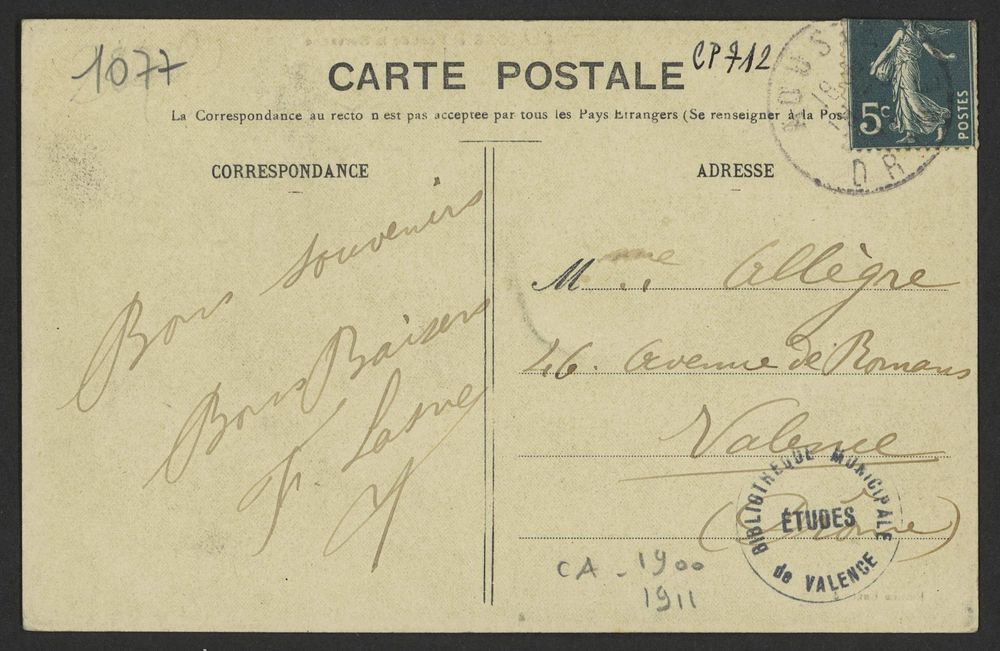 1077
CARTE POSTALE
CP 712
La Correspondance au recto n est pas acceptée par tous les Pays Etrangers (Se renseigner à la Pos
5c
POSTES
CORRESPONDANCE
ADRESSE
Bons souvenirs
Bons Baisers
F.
Mme Allègre
26. Avenue de Romans
Valence
(Drôme)
BIBLIOTHEQUE MUNICIPALE
ÉTUDES
de VALENCE
CA - 1900
1911